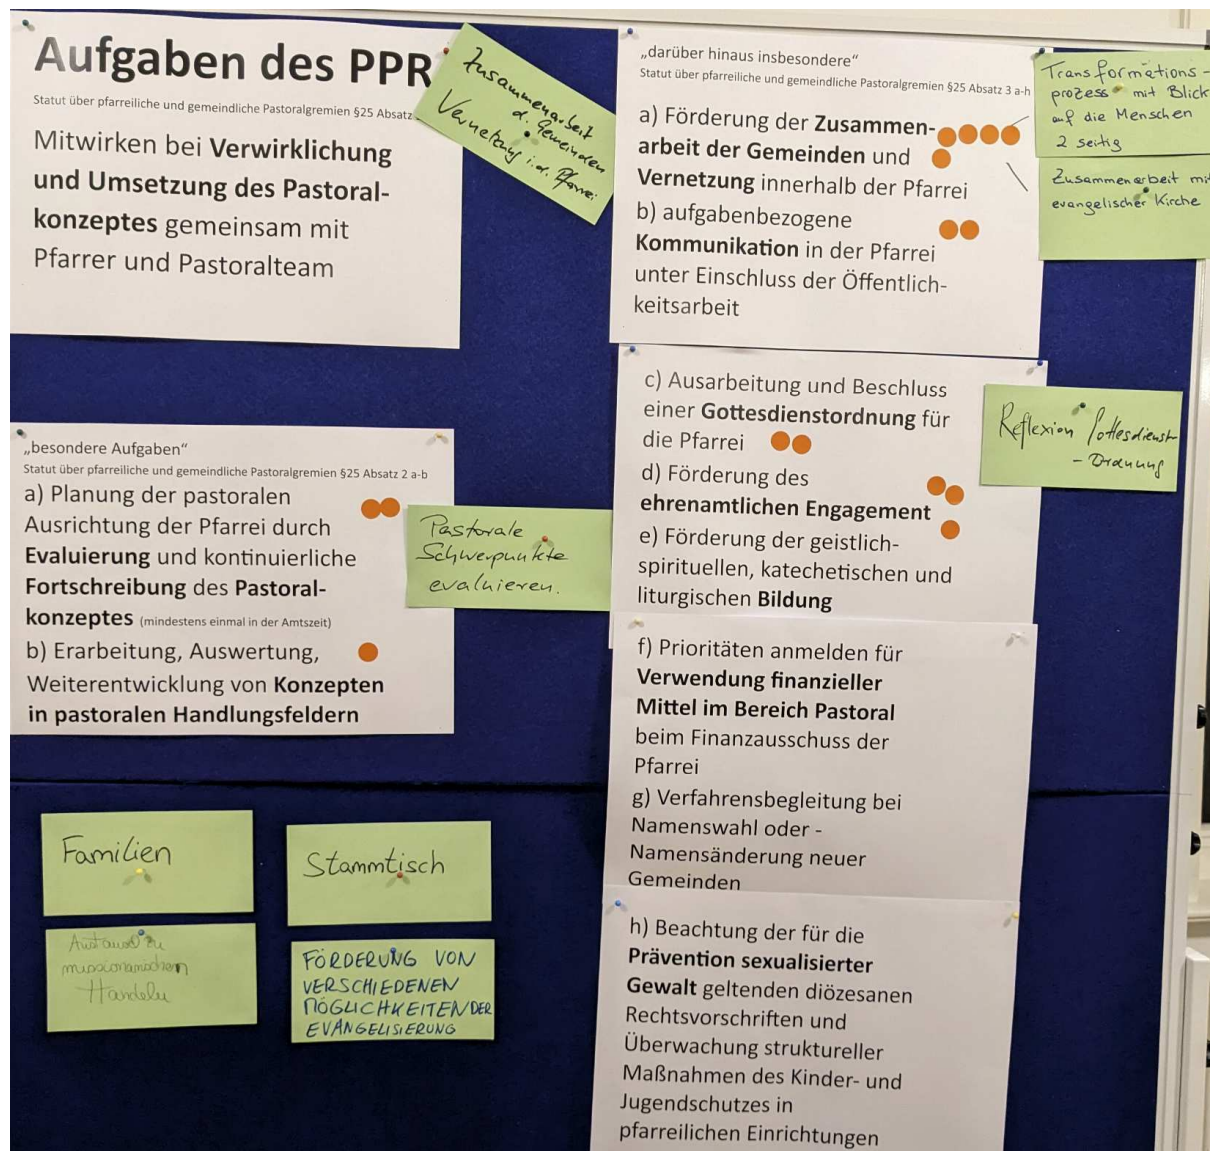 Aufgaben des PPR
Statut über pfarreiliche und gemeindliche Pastoralgremien §25 Absatz
Mitwirken bei Verwirklichung
und Umsetzung des Pastoral-
konzeptes gemeinsam mit
Pfarrer und Pastoralteam
Zusammenarbeit
d. Gemeinden
Vernetzung i.d. Pfarrei
„besondere Aufgaben“
Statut über pfarreiliche und gemeindliche Pastoralgremien §25 Absatz 2 a-b
a) Planung der pastoralen
Ausrichtung der Pfarrei durch
Evaluierung und kontinuierliche
Fortschreibung des Pastoral-
konzeptes (mindestens einmal in der Amtszeit)
b) Erarbeitung, Auswertung,
Weiterentwicklung von Konzepten
in pastoralen Handlungsfeldern
Pastorale
Schwerpunkte
evaluieren.
Familien
Stammtisch
zu
missionarischem
Handeln
FÖRDERUNG VON
VERSCHIEDENEN
MÖGLICHKEITEN DER
EVANGELISIERUNG
„darüber hinaus insbesondere“
Statut über pfarreiliche und gemeindliche Pastoralgremien §25 Absatz 3 a-h
a) Förderung der Zusammen-
arbeit der Gemeinden und
Vernetzung innerhalb der Pfarrei
b) aufgabenbezogene
Kommunikation in der Pfarrei
unter Einschluss der Öffentlich-
keitsarbeit
Transformations-
prozess mit Blick
auf die Menschen
2 seitig
Zusammenarbeit mit
evangelischer Kirche
c) Ausarbeitung und Beschluss
einer Gottesdienstordnung für
die Pfarrei
d) Förderung des
ehrenamtlichen Engagement
e) Förderung der geistlich-
spirituellen, katechetischen und
liturgischen Bildung
Reflexion Gottesdienst
- Ordnung
f) Prioritäten anmelden für
Verwendung finanzieller
Mittel im Bereich Pastoral
beim Finanzausschuss der
Pfarrei
g) Verfahrensbegleitung bei
Namenswahl oder -
Namensänderung neuer
Gemeinden
h) Beachtung der für die
Prävention sexualisierter
Gewalt geltenden diözesanen
Rechtsvorschriften und
Überwachung struktureller
Maßnahmen des Kinder- und
Jugendschutzes in
pfarreilichen Einrichtungen